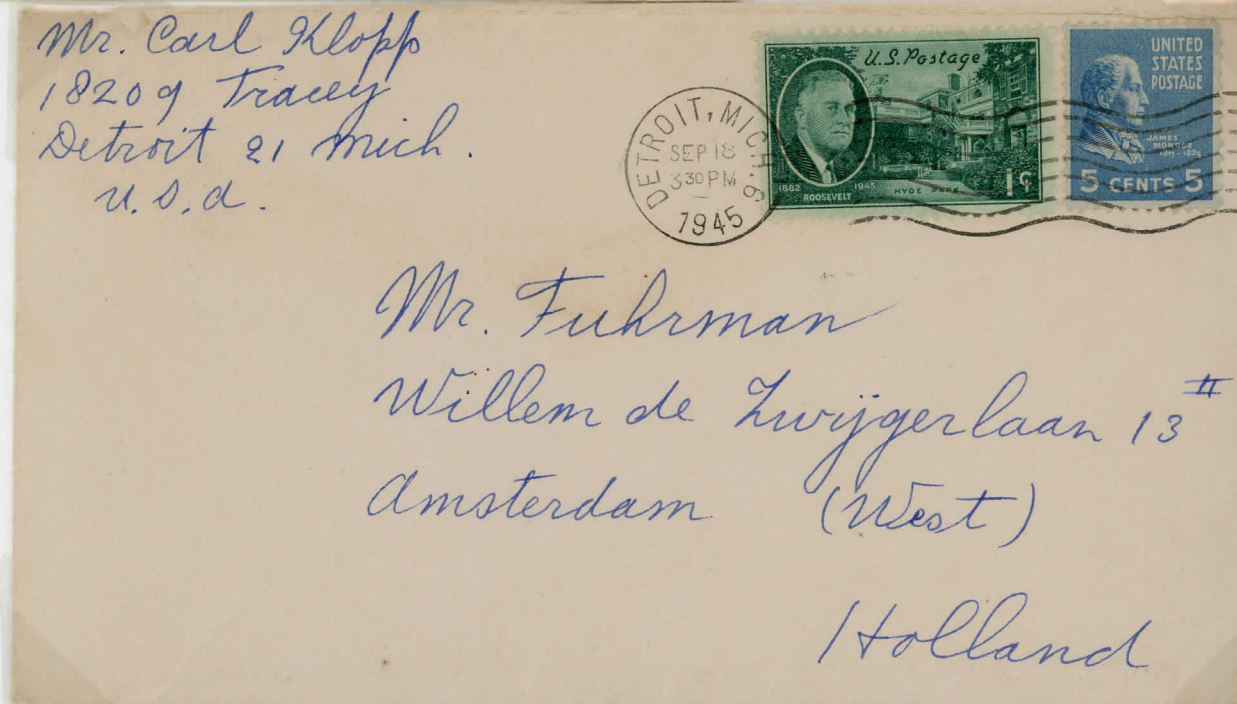 Mr. Carl Klopp
18209 Tracey
Detroit 21 Mich.
U.S.A.
DETROIT, MICH. 6
SEP 18
3 30 PM
1945
U.S. Postage
1882 1945
ROOSEVELT
HYDE PARK
1¢
UNITED
STATES
POSTAGE
JAMES
MONROE
1817-1825
5 CENTS 5
Mr. Fuhrman
Willem de Zwijgerlaan 13 II
Amsterdam (West)
Holland